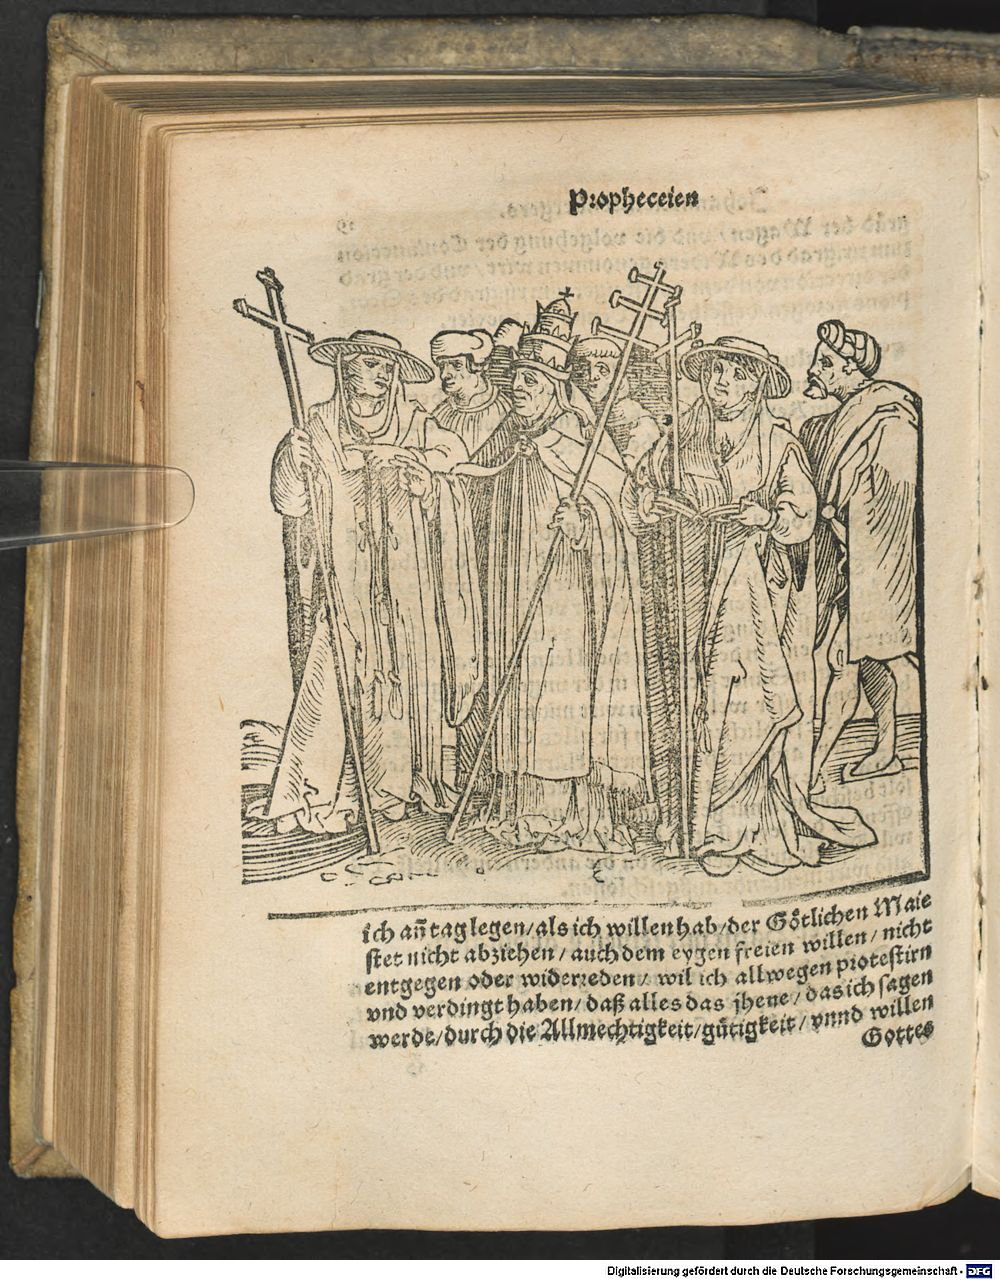 Propheceien
ich añ tag legen/als ich willen hab/der Götlichen Maie
stet nicht abziehen/auch dem eygen freien willen/nicht
entgegen oder widerreden/wil ich allwegen protestirn
vnd verdingt haben/daß alles das jhene/das ich sagen
werde/durch die Allmechtigkeit/gütigkeit/vnnd willen
Gottes
Digitalisierung gefördert durch die Deutsche Forschungsgemeinschaft - DFG